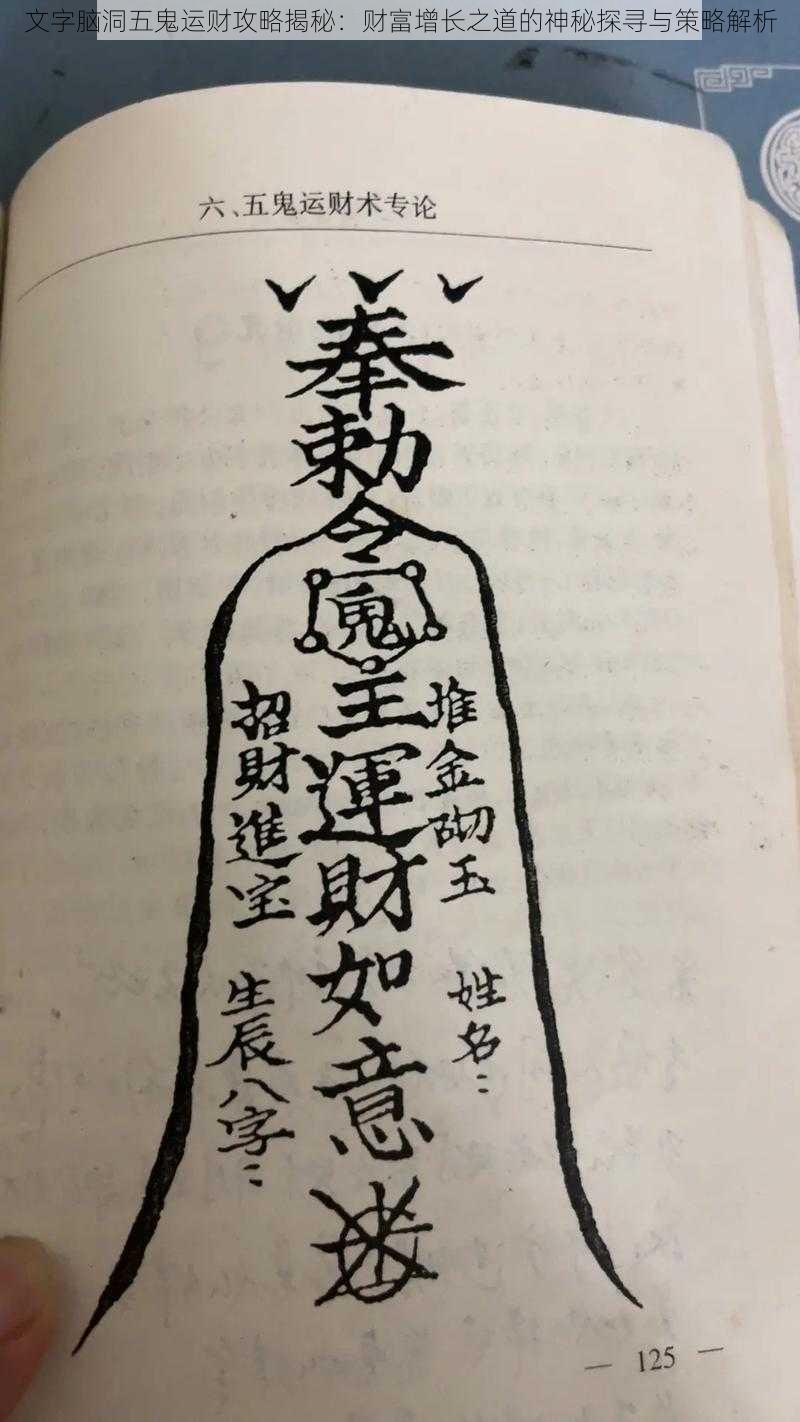 文字脑洞五鬼运财攻略揭秘：财富增长之道的神秘探寻与策略解析
六、五鬼运财术专论
奉
勅
令
鬼
王運財如意
堆金砌玉 姓名：
招財進宝 生辰八字：
— 125 —